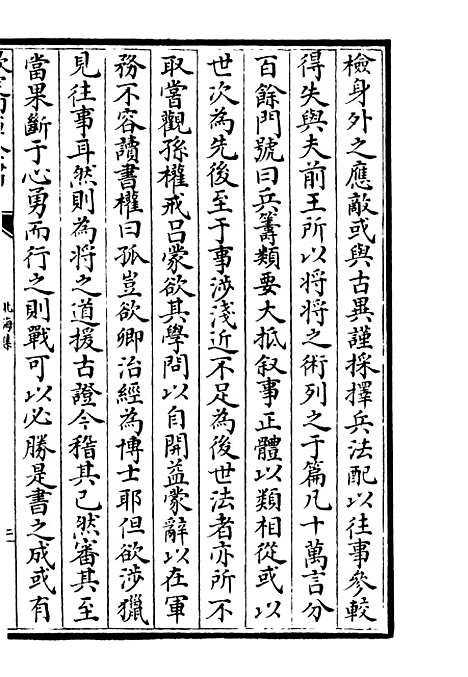 檢身外之應敵或與古異謹採擇兵法配以往事參較
得失與夫前王所以將將之術列之于篇凡十萬言分
百餘門號曰兵籌類要大抵叙事正體以類相從或以
世次為先後至于事涉淺近不足為後世法者亦所不
取嘗觀孫權戒吕蒙欲其學問以自開益蒙辭以在軍
務不容讀書權曰孤豈欲卿治經為博士耶但欲涉獵
見往事耳然則為将之道援古證今稽其已然審其至
當果斷于心勇而行之則戰可以必勝是書之成或有
北海集
三